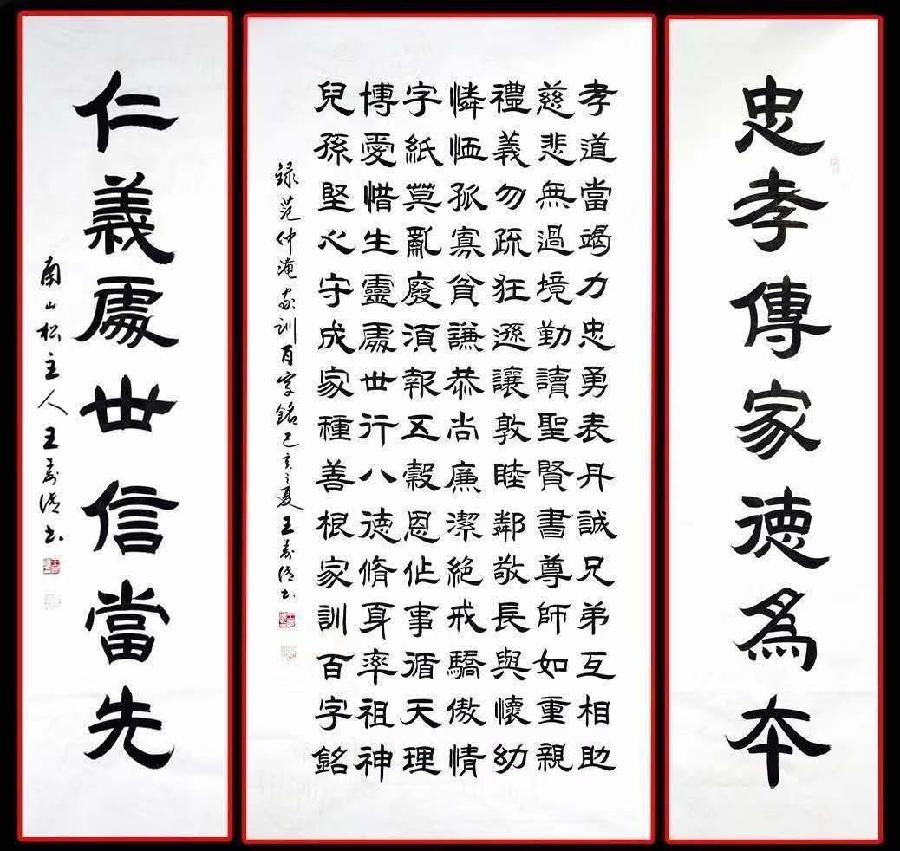 忠孝傳家徳爲本
孝道當竭力忠勇表丹誠兄弟互相助
慈悲無過境勤讀聖賢書尊師如重親
禮義勿疏狂遜讓敦睦鄰敬長與懷幼
憐恤孤寡貧謙恭尚廉潔絕戒驕傲情
字紙莫亂廢須報五穀恩作事循天理
博愛惜生靈處世行八德脩身率祖神
兒孫堅心守成家種善根家訓百字銘
録范仲淹家训百字銘己亥之夏王书
仁義處世信當先
南山松主人王书